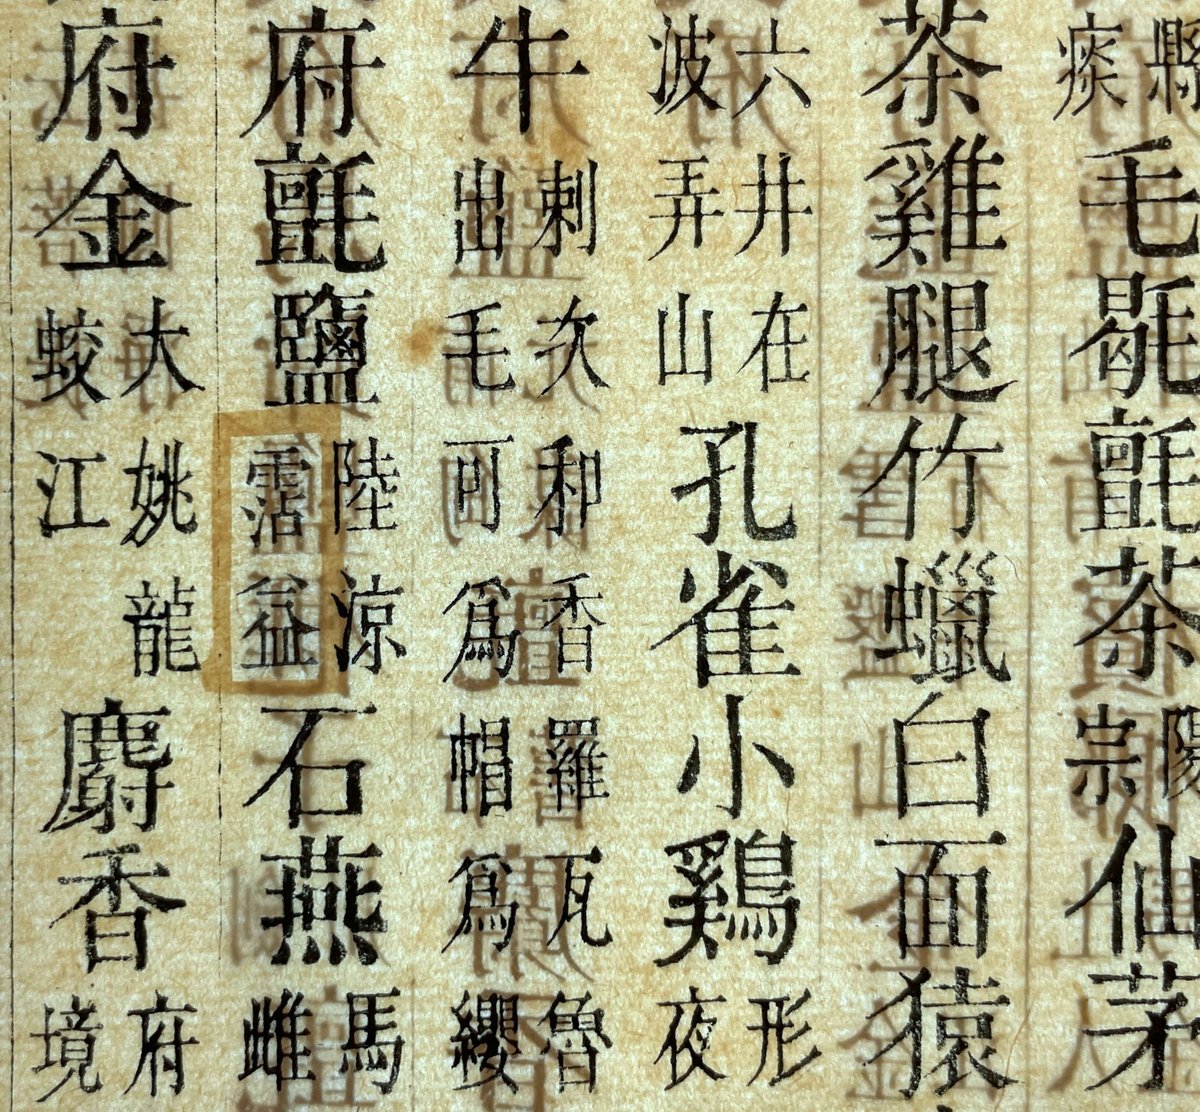 縣痰毛毼氈茶陽宗仙茅
茶雞腿竹蠟白面猿
六井在波弄山孔雀小鷄形夜
牛刺次和香羅瓦魯出毛可爲帽爲纓
府氈鹽陸涼霑益石燕馬雌
府金大姚龍蛟江麝香府境